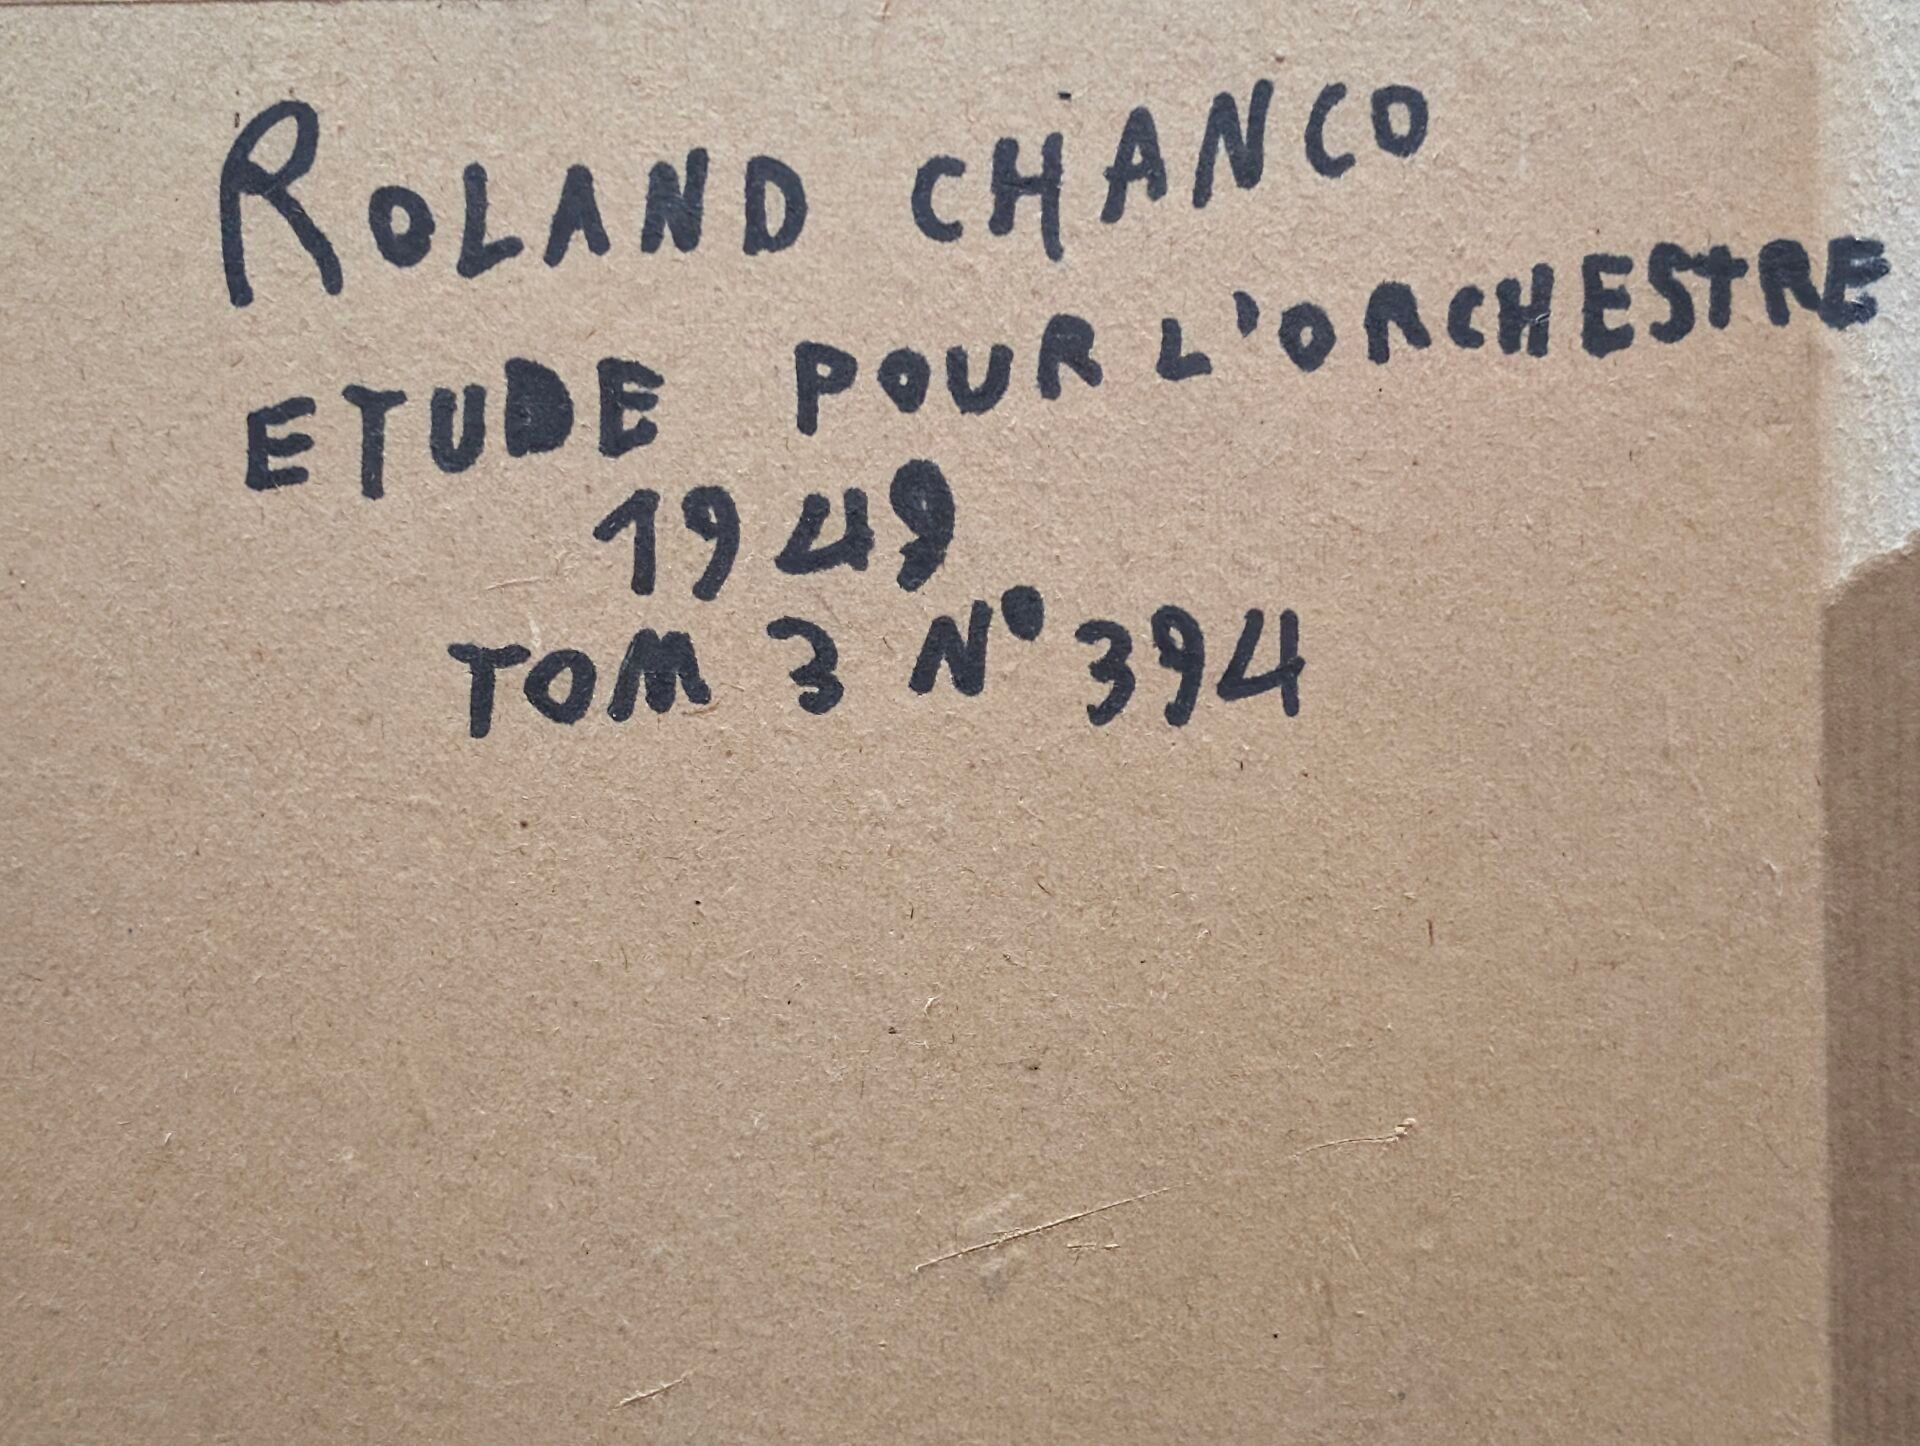 ROLAND CHANCO
ETUDE POUR L'ORCHESTRE
1949
TOM 3 N° 394